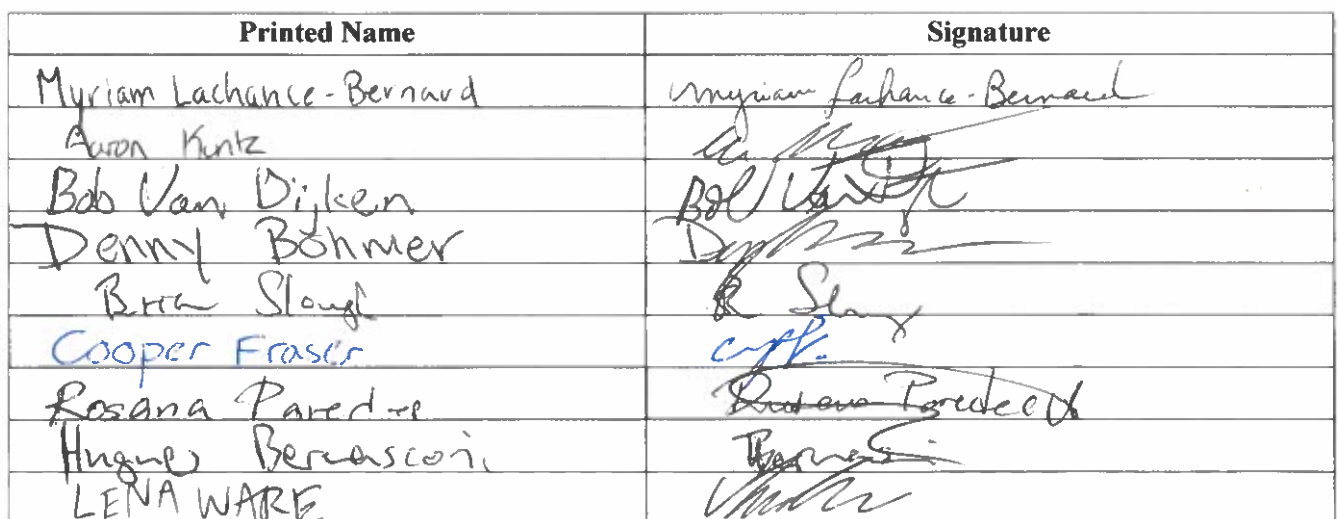 Printed Name Signature
Myriam Lachance-Bernard Myriam Lachance-Bernard
Aaron Kuntz
Bob Van Dijken Bob
Denny Böhmer
Brian Slough B Slough
Cooper Fraser
Rosana Paredes Rosana Paredes
Hugues Bernasconi
LENA WARE